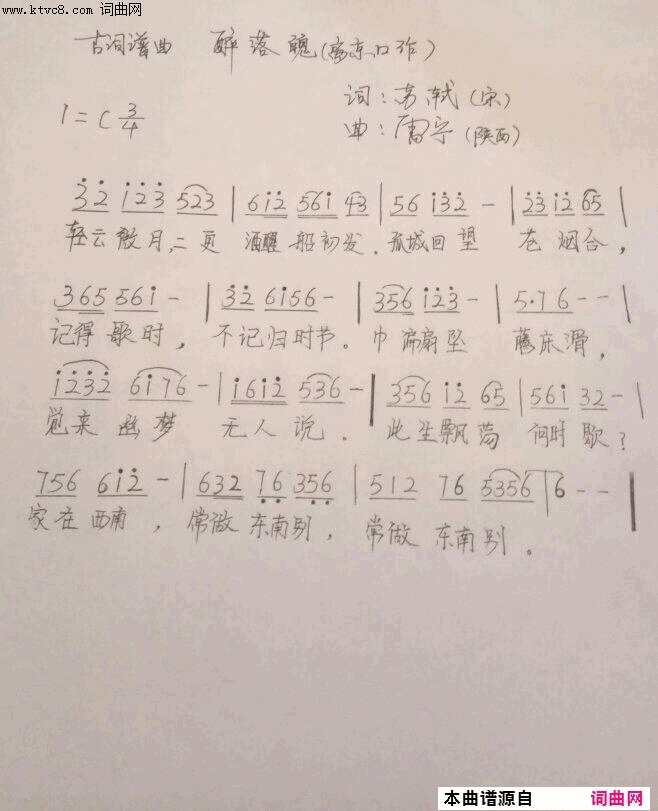 www.ktvc8.com 词曲网
古词谱曲 醉落魄(离京口作)
词:苏轼(宋)
1=C 3/4
曲:雷宇(陕西)
3̇2̇ 1̇2̇3̇ 523 | 61̇2̇ 561̇ 43 | 56 1̇3̇2̇ - | 2̇3̇ 1̇2̇ 65 |
轻云散月,二更 酒醒船初发.孤城回望 苍烟合,
365 561̇ - | 3̇2̇ 61̇56 - | 356 1̇2̇3̇ - | 5·7 6 - - |
记得歌时,不记归时节。巾偏扇坠 藤床滑,
1̇2̇3̇2̇ 61̇76 - | 1̇61̇2̇ 536 - | 356 1̇2̇ 65 | 561̇ 32 - |
觉来幽梦 无人说.此生飘荡 何时歇?
756 61̇2̇ - | 632 7̣6̣ 3̣5̣6̣ | 512 76 5356 | 6 - - |
家在西南,常做东南别,常做东南别。
本曲谱源自 词曲网